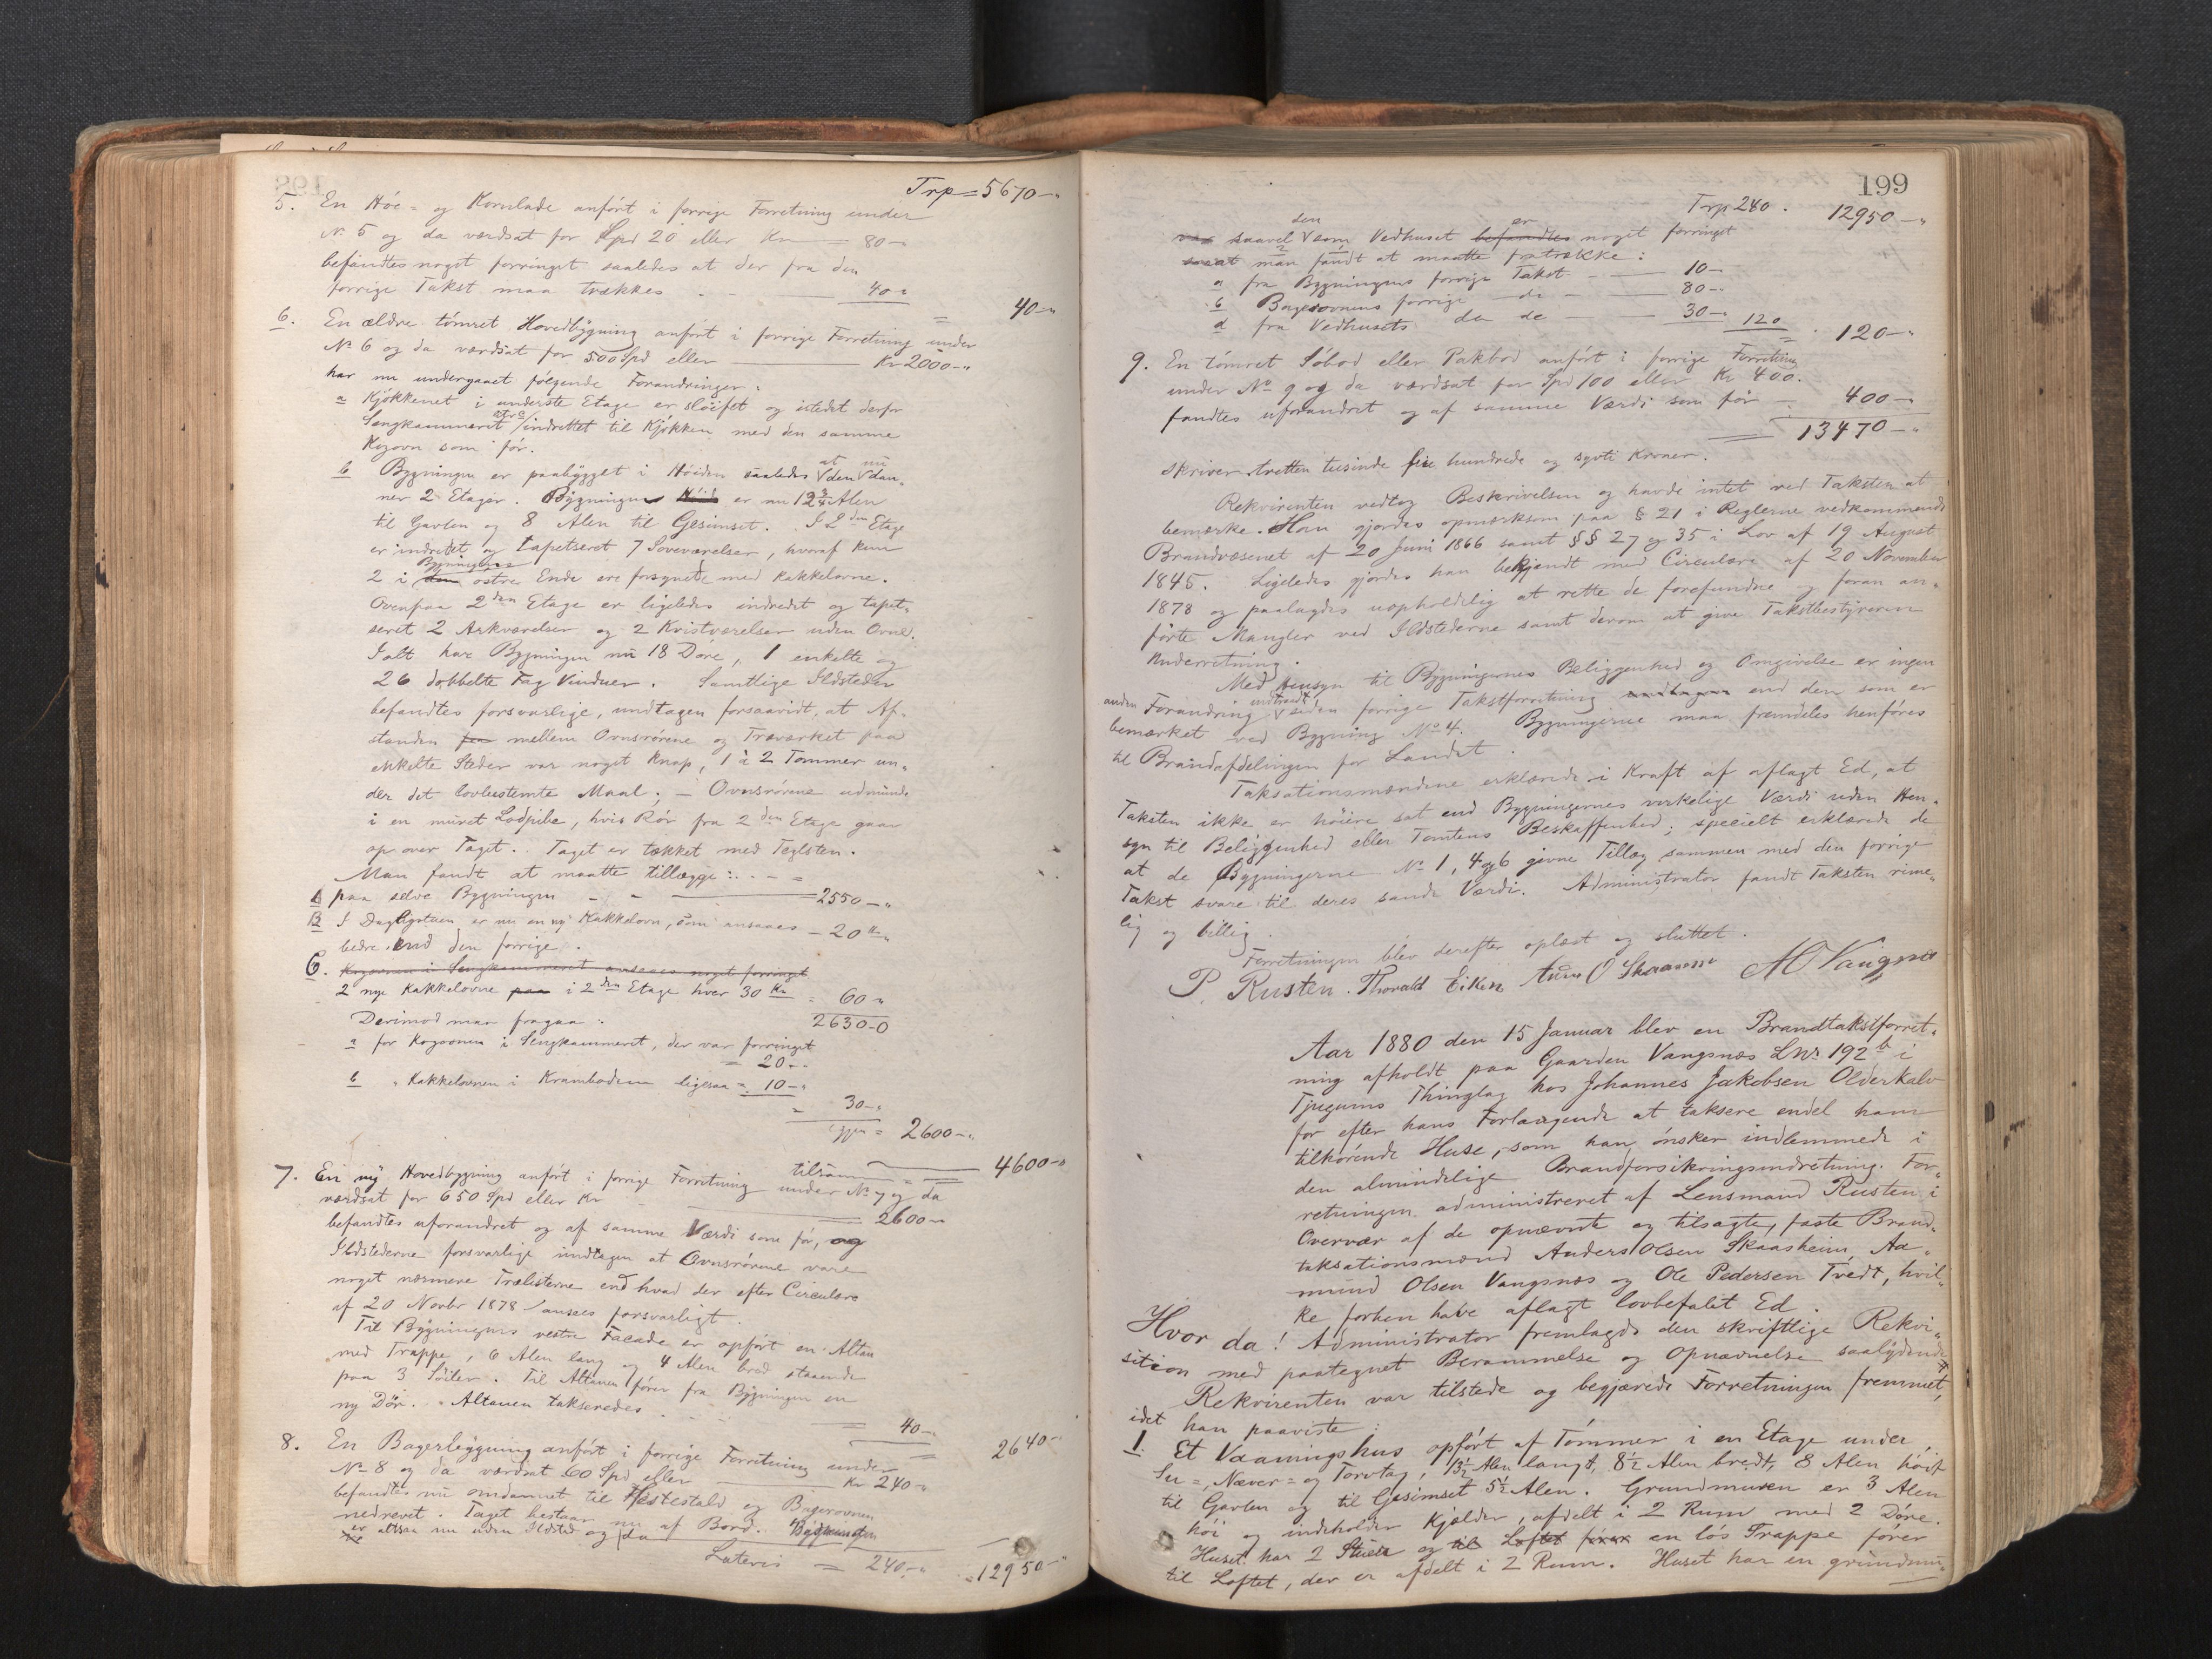 Trp = 5670 -"
5. En Höe- og Kornlade anfört i forrige Forretning under
No 5 og da værdsat for Spd 20 eller Kr — 80 -"
befandtes noget forringet saaledes at der fra den
forrige Takst maa trækkes — 40 "
= 40 -"
6. En ældre tömret Hovedbygning anfört i forrige Forretning under
No 6 og da værdsat for 500 Spd eller — Kr 2000 -"
har nu undergaaet fölgende Forandringer:
a Kjökkenet i underste Etage er slöifet og istedet derfor
Sengkammeret indrettet til Kjökken med den samme
Kogovn som för.
b Bygningen er paabygget i Höiden saaledes at den nu dan-
ner 2 Etager. Bygningen Höide er nu 12 3/4 Alen
til Gavlen og 8 Alen til Gesimset. I 2den Etage
er indredet og tapetseret 7 Soveværelser, hvoraf kun
2 i den Bygningens östre Ende ere forsynede med Kakkelovne.
Ovenpaa 2den Etage er ligeledes indredet og tapet-
seret 2 Arkværelser og 2 Kvistværelser uden Ovne.
Ialt har Bygningen nu 18 Döre, 1 enkelte og
26 dobbelte Fag Vinduer. Samtlige Ildsteder
befandtes forsvarlige, undtagen forsaavidt, at Af-
standen fra mellem Ovnsrörene og Træværket paa
enkelte Steder var noget knap, 1 à 2 Tommer un-
der det lovbestemte Maal; — Ovnsrörene udmunde
i en muret Lodpibe, hvis Rör fra 2den Etage gaar
op over Taget. Taget er tækket med Teglsten.
Man fandt at maatte tillægge:
A paa selve Bygningen — = 2550 -"
B I Dagligstuen er nu en ny Kakkelovn, som ansaaes — 20 "
bedre end den forrige.
C. Kogovnen i Sengkammeret ansaaes noget forringet
2 nye Kakkelovne paa i 2den Etage hver 30 Kr = 60 "
2630 - 0
Derimod maa fragaa:
a for Kogovnen i Sengkammeret, der var forringet
= 20 -"
b " Kakkelovnen i Kramboden ligesaa = 10 -"
= 30 -"
igjen = 2600 -"
tilsammen = 4600 -"
7. En ny Hovedbygning anfört i forrige Forretning under No 7 og da
værdsat for 650 Spd eller Kr — 2600 -"
befandtes uforandret og af samme Værdi som för, og
Ildstederne forsvarlige undtagen at Ovnsrörene vare
noget nærmere Trælisterne end hvad der efter Circulære
af 20 Novbr 1878 ansees forsvarligt.
Til Bygningens vestre Facade er opfört en Altan
med Trappe, 6 Alen lang og 4 Alen bred staaende
paa 3 Söiler. Til Altanen förer fra Bygningen en
ny Dör. Altanen takseredes = 40 -"
= 2640 -"
8. En Bagerbygning anfört i forrige Forretning under
No 8 og da værdsat 60 Spd eller — Kr 240 -"
befandtes nu omdannet til Hestestald og Bagerovnen
nedrevet. Taget bestaar nu af Bord. Bygningen
er altsaa nu uden Ildsted og da
Lateris = 240 -" = 12950 -"
199
Trp 240. 12950 -"
var saavel den som Vedhuset befandtes er noget forringet
saaat man fandt at maatte fratrække:
a fra Bygningens forrige Takst — 10 -
b Bagerovnens forrige do — 80 -
d fra Vedhusets do do — 30 - 120 120 -"
9. En tömret Söbod eller Pakbod anfört i forrige Forretning
under No 9 og da værdsat for Spd 100 eller Kr 400.
fandtes uforandret og af samme Værdi som för — 400 -
13470 -"
skriver tretten tusinde fire hundrede og sytti Kroner.
Rekvirenten vedtog Beskrivelsen og havde intet ved Taksten at
bemærke. Han gjordes opmærksom paa § 21 i Reglerne vedkommende
Brandvæsenet af 20 Juni 1866 samt §§ 27 og 35 i Lov af 19 August
1845. Ligeledes gjordes han bekjendt med Circulære af 20 November
1878 og paalagdes uopholdelig at rette de forefundne og foran an-
förte Mangler ved Ildstederne samt derom at give Takstbestyreren
Underretning.
Med Hensyn til Bygningernes Beliggenhed og Omgivelse er ingen
anden Forandring indtraadt siden forrige Takstforretning undtagen end den som er
bemærket ved Bygning No 4. Bygningerne maa fremdeles henföres
til Brandafdelingen for Landet.
Taksationsmændene erklærede i Kraft af aflagt Ed, at
Taksten ikke er höiere sat end Bygningernes virkelige Værdi uden Hen-
syn til Beliggenhed eller Tomtens Beskaffenhed; specielt erklærede de
at de Bygningerne No 1, 4 og 6 givne Tillæg sammen med den forrige
Takst svare til deres sande Værdi. Administrator fandt Taksten rime-
lig og billig.
Forretningen blev derefter oplæst og sluttet.
P. Rusten. Thorald Eiken O Skaasheim AO Vangsnes
Aar 1880 den 15 Januar blev en Brandtakstforret-
ning afholdt paa Gaarden Vangsnæs LNr 192 b i
Tjugums Thinglag hos Johannes Jakobsen Olderkalv
for efter hans Forlangende at taksere endel ham
tilhörende Huse, som han önsker indlemmede i
den almindelige Brandforsikringsindretning. For-
retningen administreret af Lensmand Rusten i
Overvær af de opnævnte og tilsagte, faste Brand-
taksationsmænd Anders Olsen Skaasheim, Aa-
mund Olsen Vangsnæs og Ole Pedersen Tvedt, hvil-
ke forhen have aflagt lovbefalet Ed.
Hvor da! Administrator fremlagde den skriftlige Rekvi-
sition med paategnet Berammelse og Opnævnelse saalydende
Rekvirenten var tilstede og begjærede Forretningen fremmet,
idet han paaviste:
1. Et Vaaningshus opfört af Tömmer i en Etage under
Su-, Næver- og Torvtag, 13 1/2 Alen langt, 8 1/2 Alen bredt, 8 Alen höit
til Gavlen og til Gesimset 5 1/2 Alen. Grundmuren er 3 Alen
höi og indeholder Kjælder, afdelt i 2 Rum med 2 Döre.
Huset har 2 Stuer og til Loftet förer en lös Trappe förer
til Loftet, der er afdelt i 2 Rum. Huset har en grundmu-